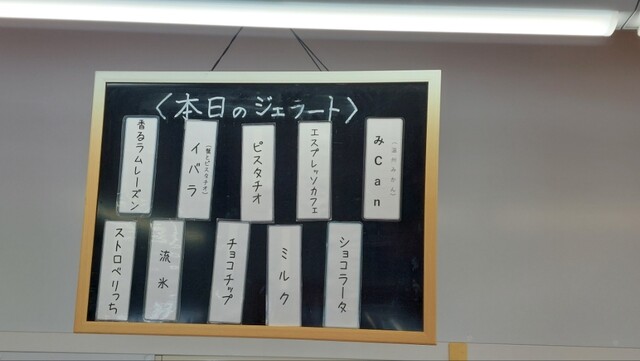 〈本日のジェラート〉
みCan
(温州みかん)
エスプレッソカフェ
ピスタチオ
イバラ
香るラムレーズン
ショコラータ
ミルク
チョコチップ
流氷
ストロベリっち